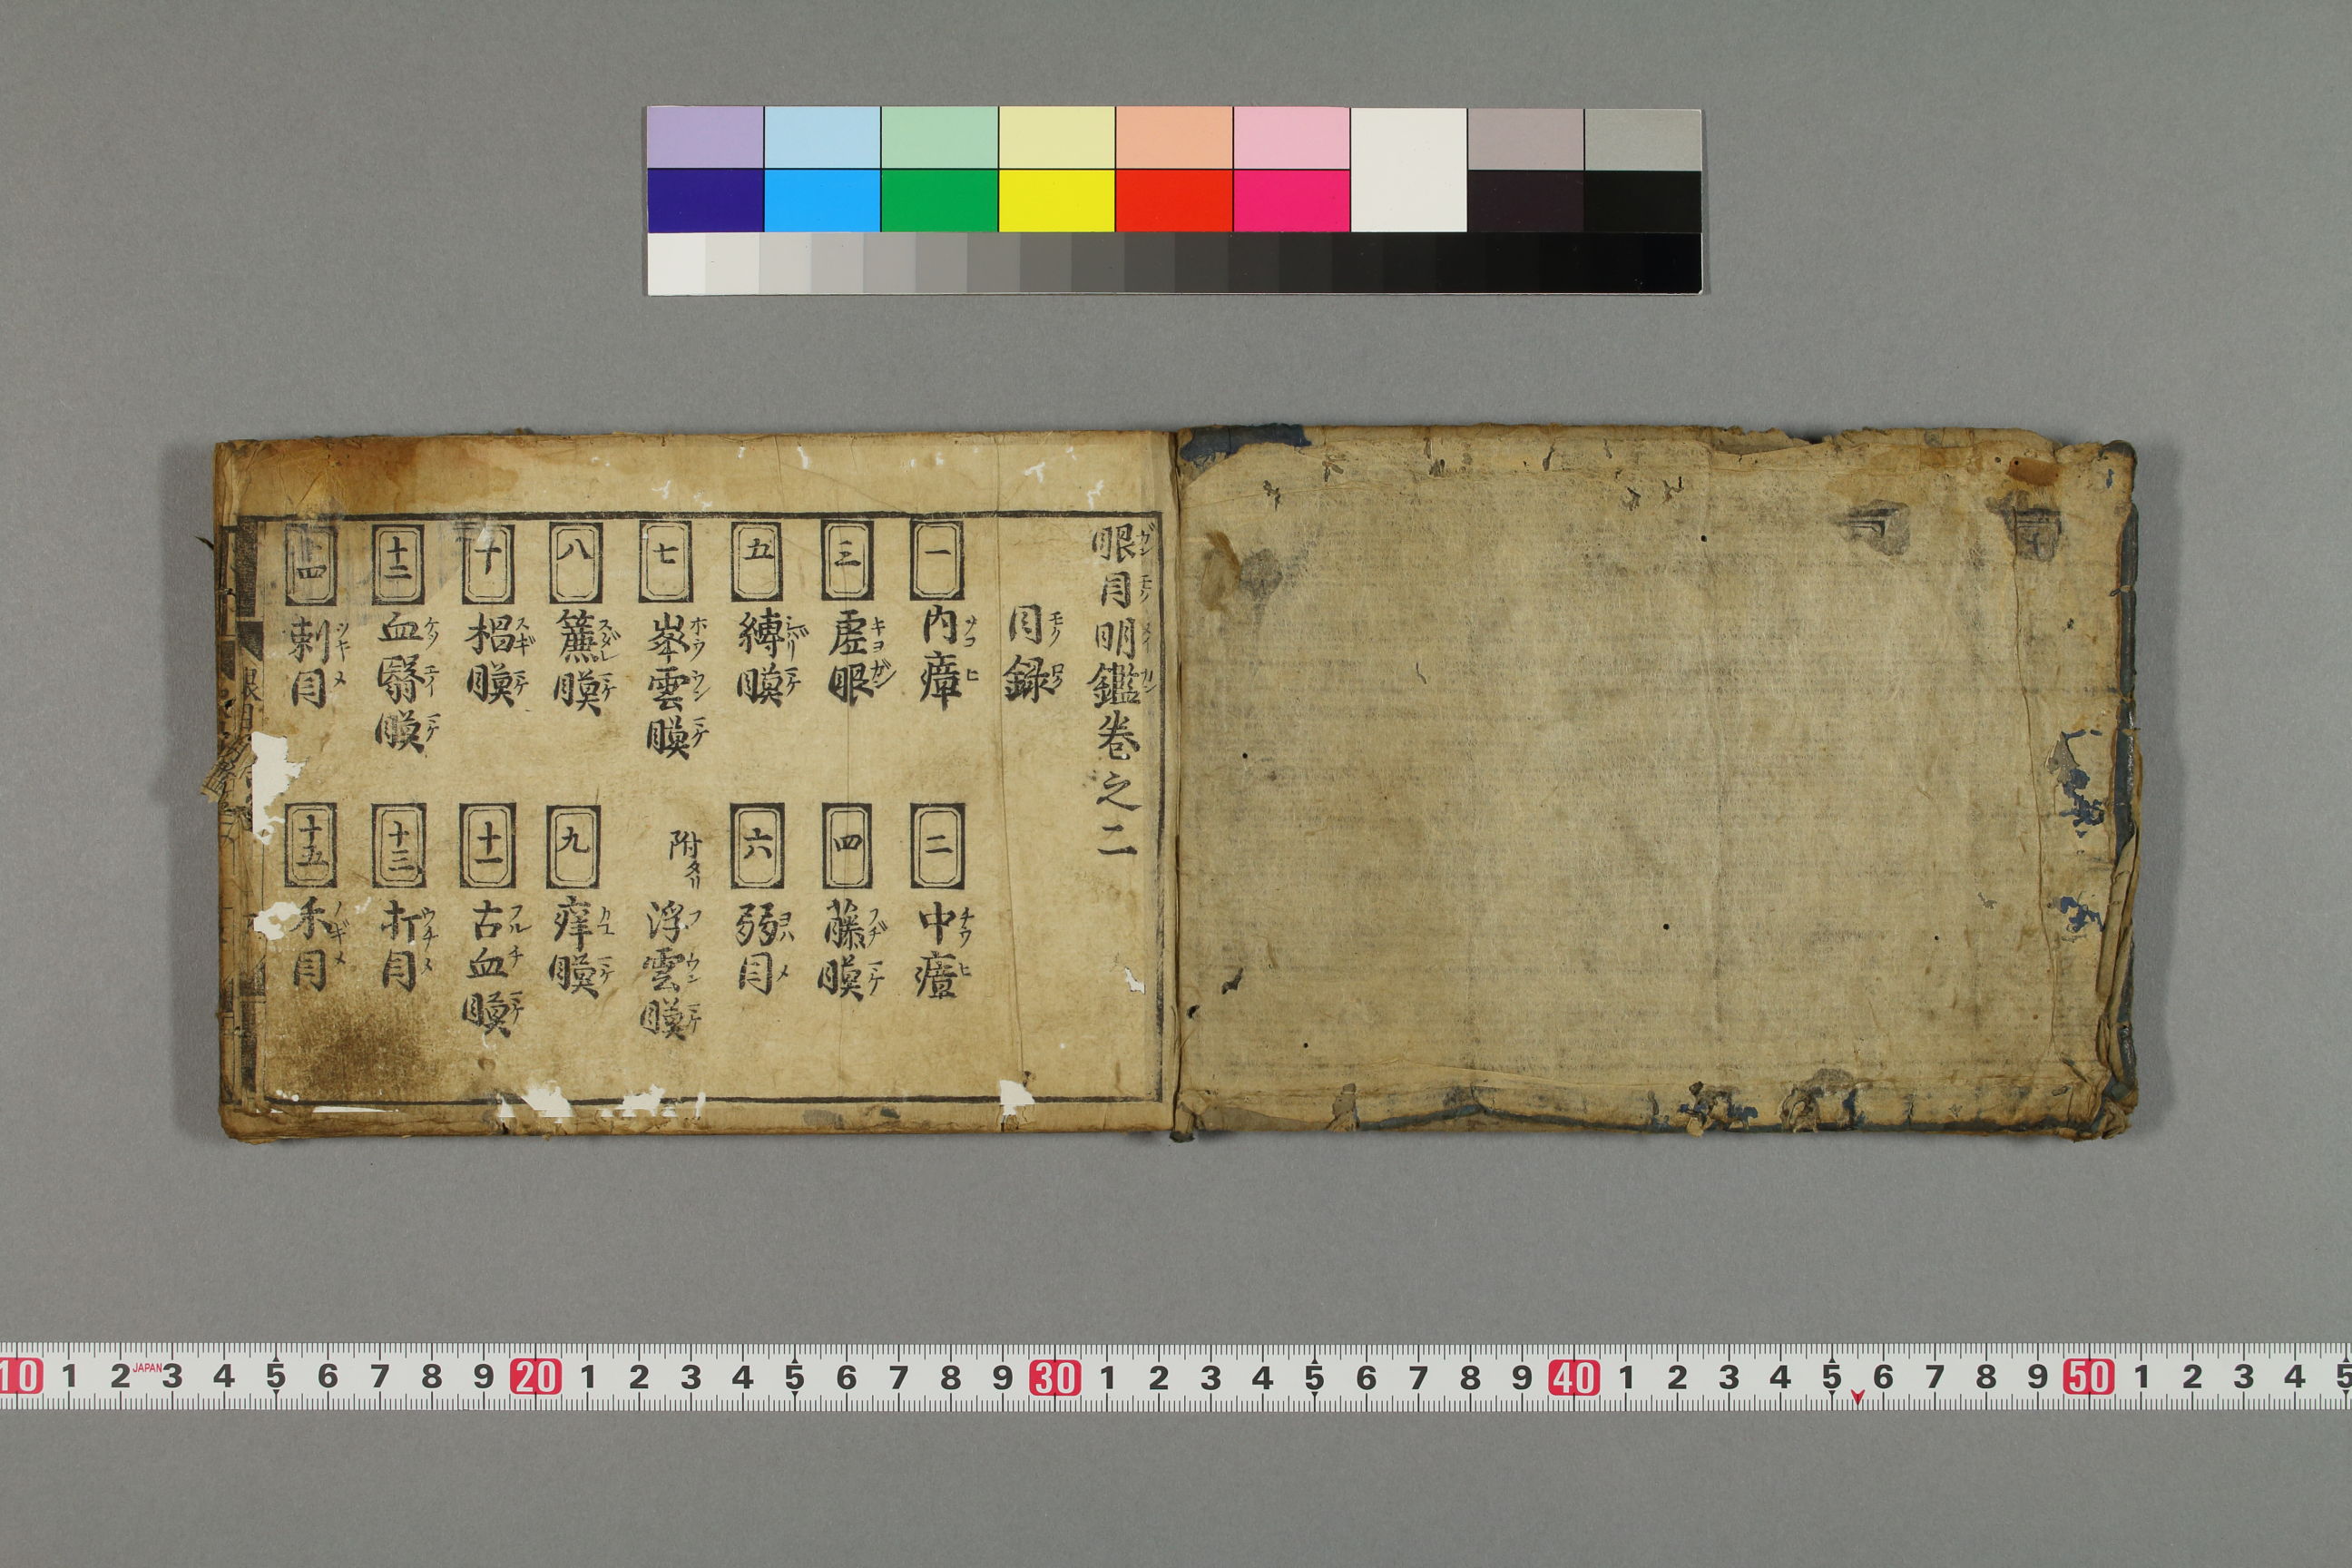 眼目明鑑巻之二
目録
一 内瘴
二 中瘴
三 虚眼
四 藤膜
五 縛膜
六 弱目
七 峯雲膜
附タリ 浮雲膜
八 簾膜
九 痒膜
十 椙膜
十一 古血膜
十二 血翳膜
十三 打目
十四 刺目
十五 禾目
10 1 2 JAPAN 3 4 5 6 7 8 9 20 1 2 3 4 5 6 7 8 9 30 1 2 3 4 5 6 7 8 9 40 1 2 3 4 5 6 7 8 9 50 1 2 3 4 5